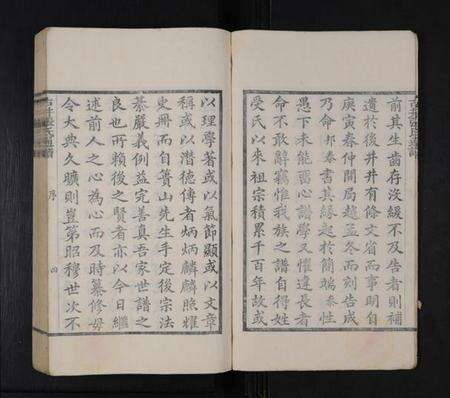 前其生齒存沒緩不及告者則補
遺於後井井有條文省而事明自
庚寅春仲開局越孟冬而刻告成
乃命邦奉書其緣起於簡端奉性
愚下未能西心譜學又懼違長者
命不敢辭竊惟我族之譜自得姓
受氏以來祖宗積累千百年故或
以理學著或以氣節顯或以文章
稱或以潛德傳者炳炳麟麟照燿
史冊而自簣山先生手定後宗法
綦嚴義例益完善真吾家世譜之
良也所賴後之賢者亦以今日繼
述前人之心為心而及時纂修毋
令大典久曠則豈第昭穆世次不
氏通譜
序
四